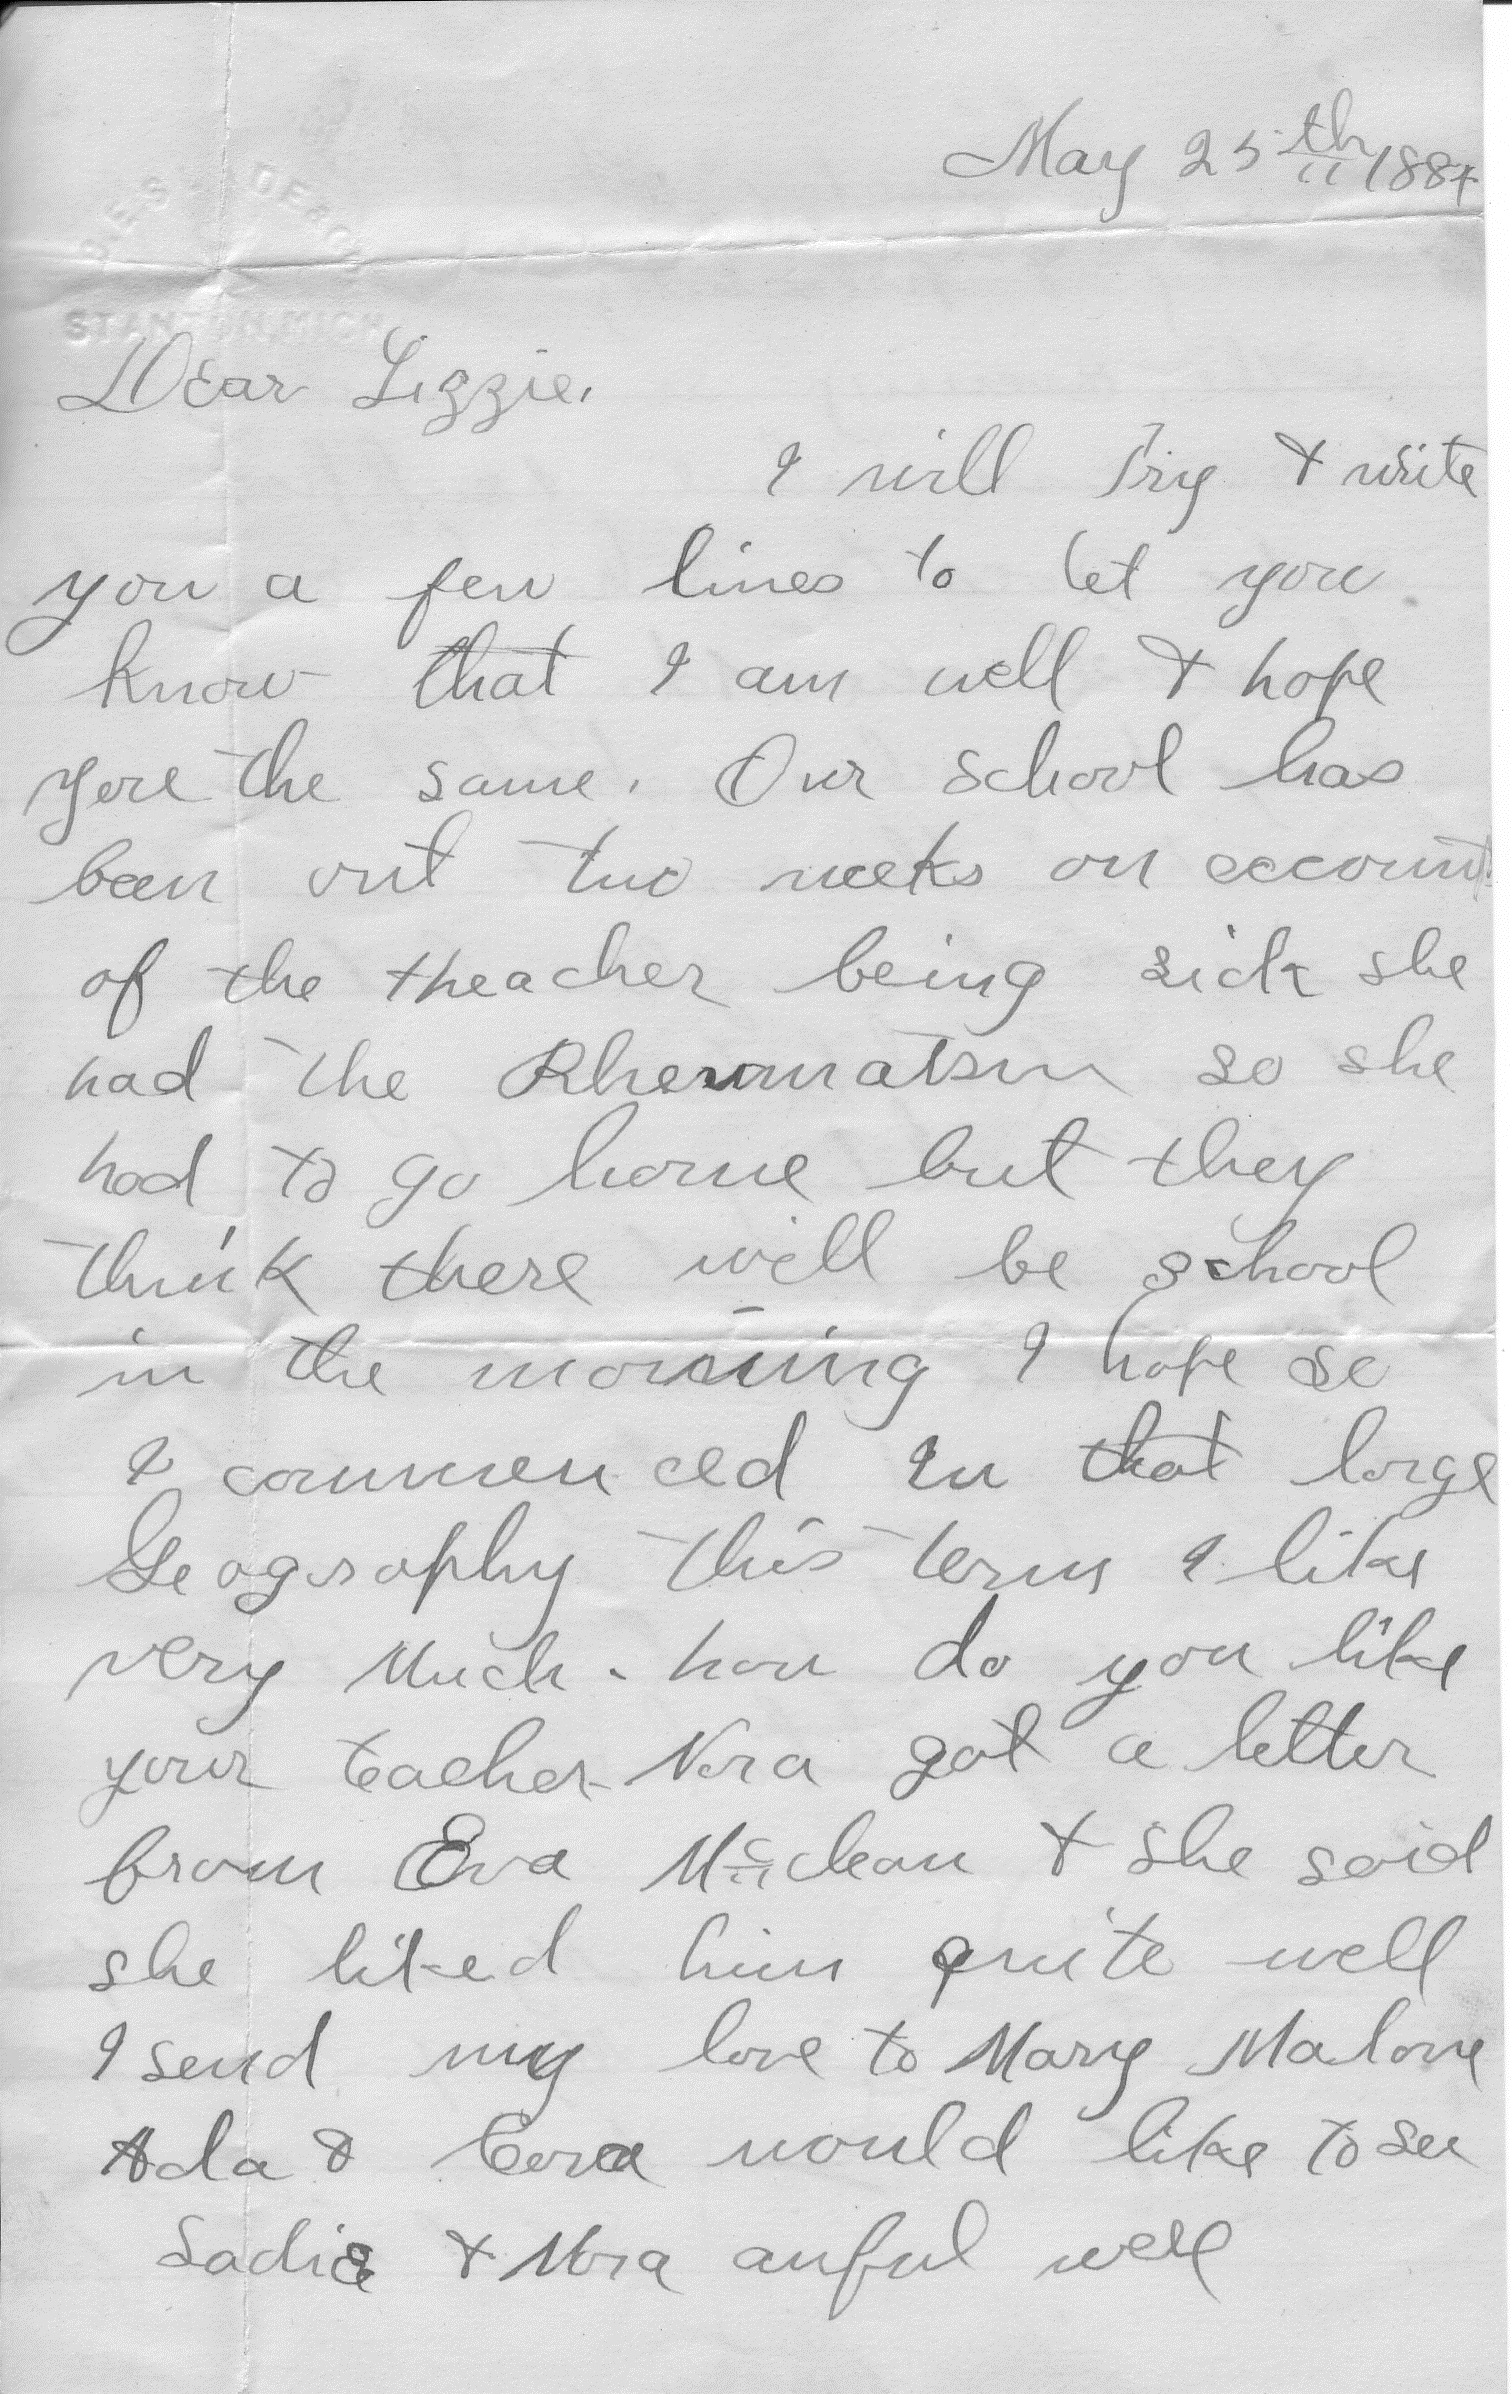 May 25th 1884
STANTON, MICH
Dear Lizzie.
I will Try & write
you a few lines to let you
know that I am well & hope
yore the same. Our school has
been out two weeks on eccount
of the theacher being sick she
had the Rheumatsm so she
had to go home but they
think there will be school
in the morning I hope so
I commenced in that large
Geography this term I like
very Much. how do you like
your teacher Nora got a letter
from Eva Mcclean & she said
she liked him quite well
I send my love to Mary Malone
Ada & Cora would like to see
Sadie & Nora awful well